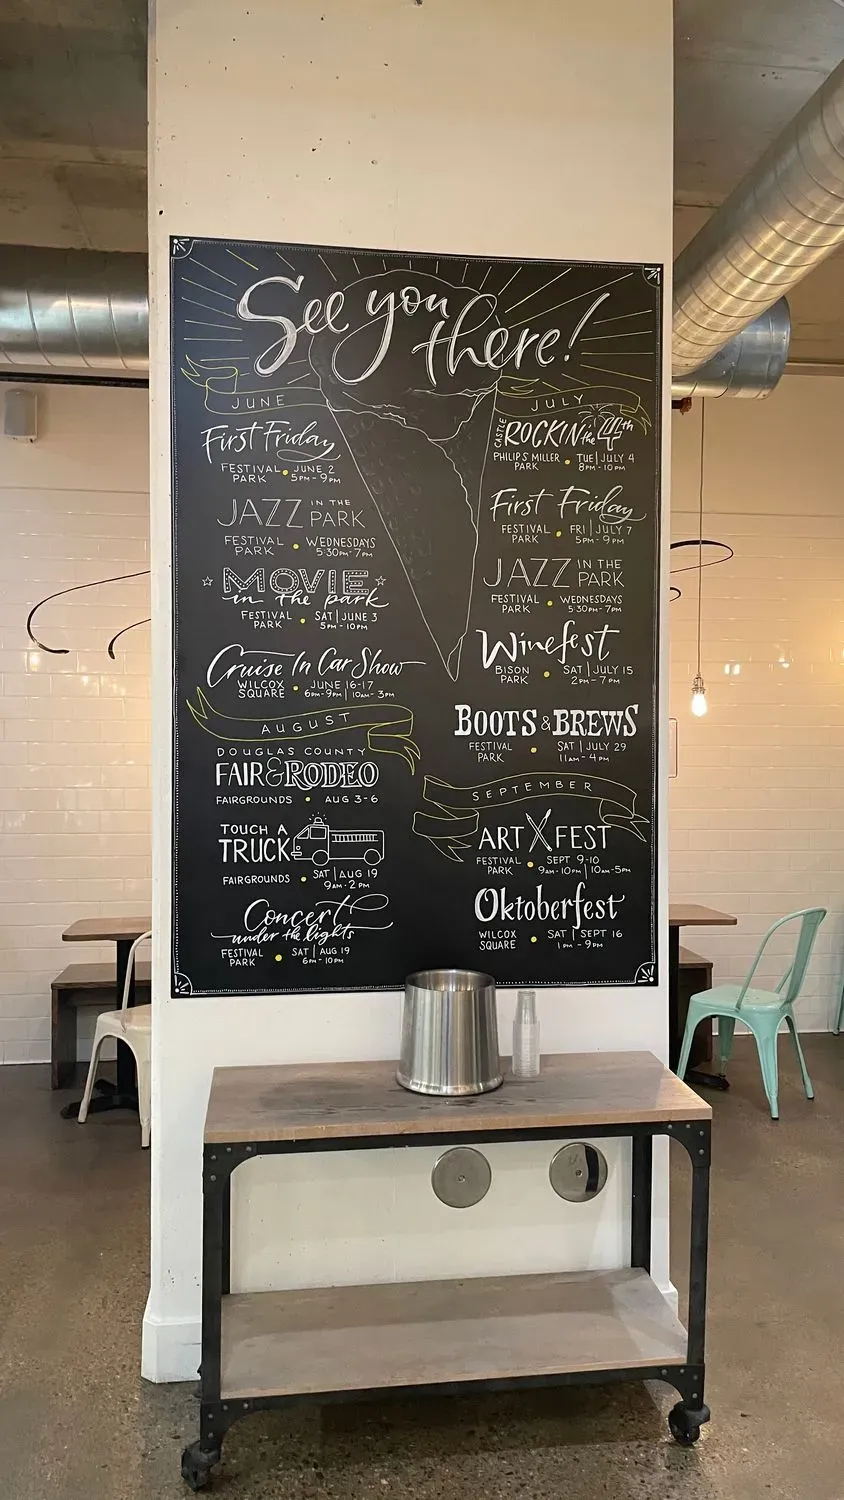 See you
there!
JUNE
First Friday
FESTIVAL PARK • JUNE 2
5PM - 9PM
JAZZ IN THE PARK
FESTIVAL PARK • WEDNESDAYS
5:30PM - 7PM
MOVIE
in the park
FESTIVAL PARK • SAT | JUNE 3
5PM - 10PM
Cruise In Car Show
WILCOX SQUARE • JUNE 16-17
6PM - 9PM | 10AM - 3PM
AUGUST
DOUGLAS COUNTY
FAIR & RODEO
FAIRGROUNDS • AUG 3-6
TOUCH A
TRUCK
FAIRGROUNDS • SAT | AUG 19
9AM - 2PM
Concert
under the lights
FESTIVAL PARK • SAT | AUG 19
6PM - 10PM
JULY
CASTLE ROCKIN the 4th
PHILIP S MILLER PARK • TUE | JULY 4
8PM - 10PM
First Friday
FESTIVAL PARK • FRI | JULY 7
5PM - 9PM
JAZZ IN THE PARK
FESTIVAL PARK • WEDNESDAYS
5:30PM - 7PM
Winefest
BISON PARK • SAT | JULY 15
2PM - 7PM
BOOTS & BREWS
FESTIVAL PARK • SAT | JULY 29
11AM - 4PM
SEPTEMBER
ART FEST
FESTIVAL PARK • SEPT 9-10
9AM - 10PM | 10AM - 5PM
Oktoberfest
WILCOX SQUARE • SAT | SEPT 16
1PM - 9PM